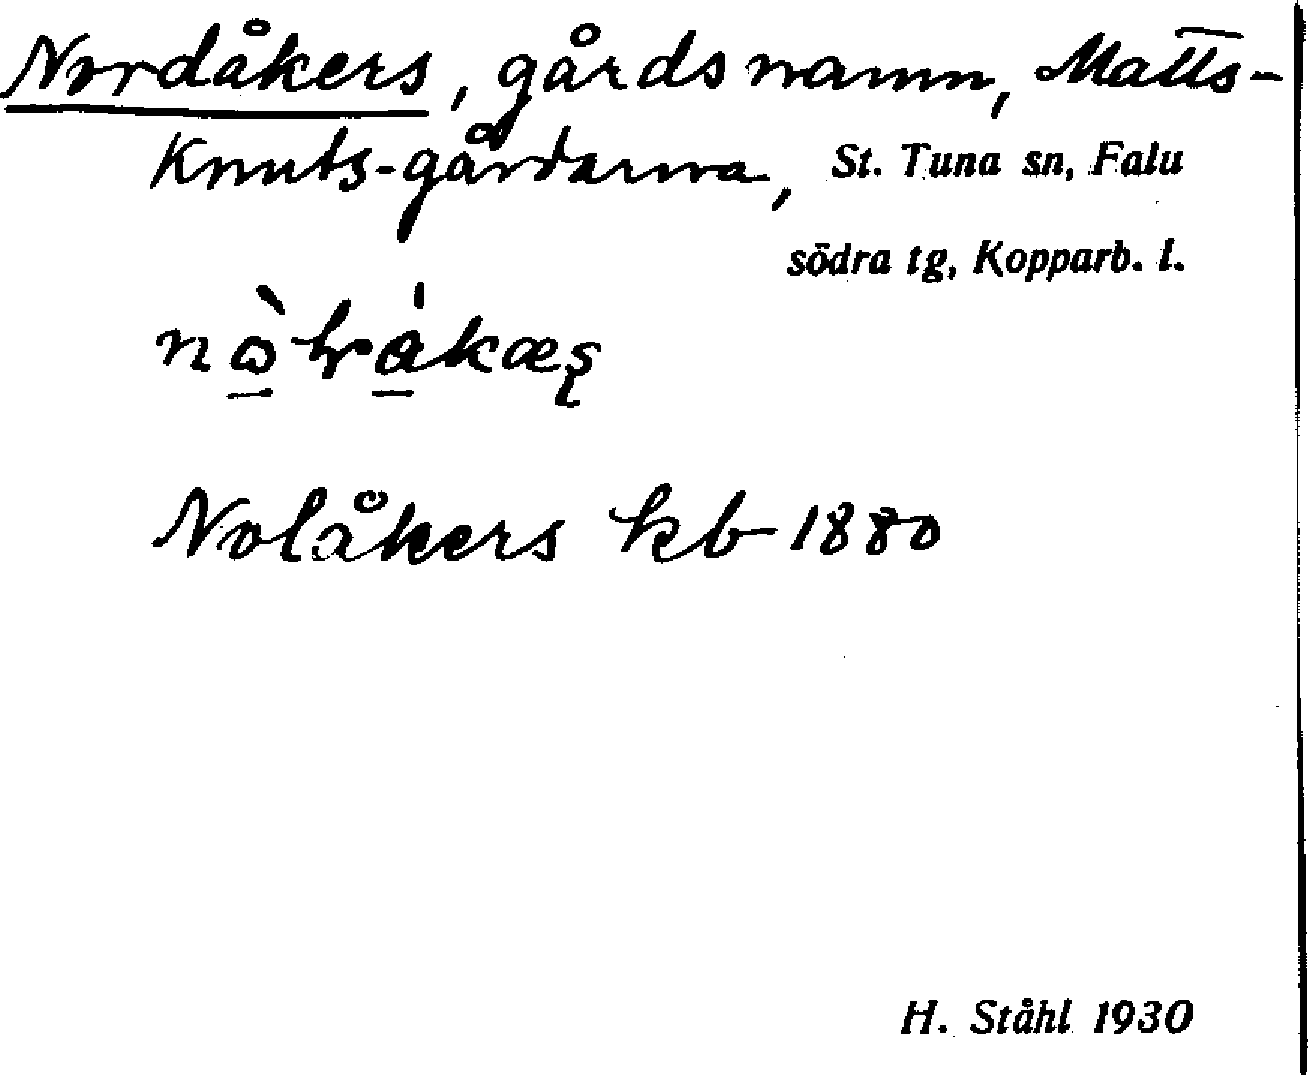 Nordåkers, gårdsnamn, Matts-
Knuts-gårdarna, St. Tuna sn, Falu
södra tg, Kopparb. l.
Nolåkers kb 1880
H. Ståhl 1930